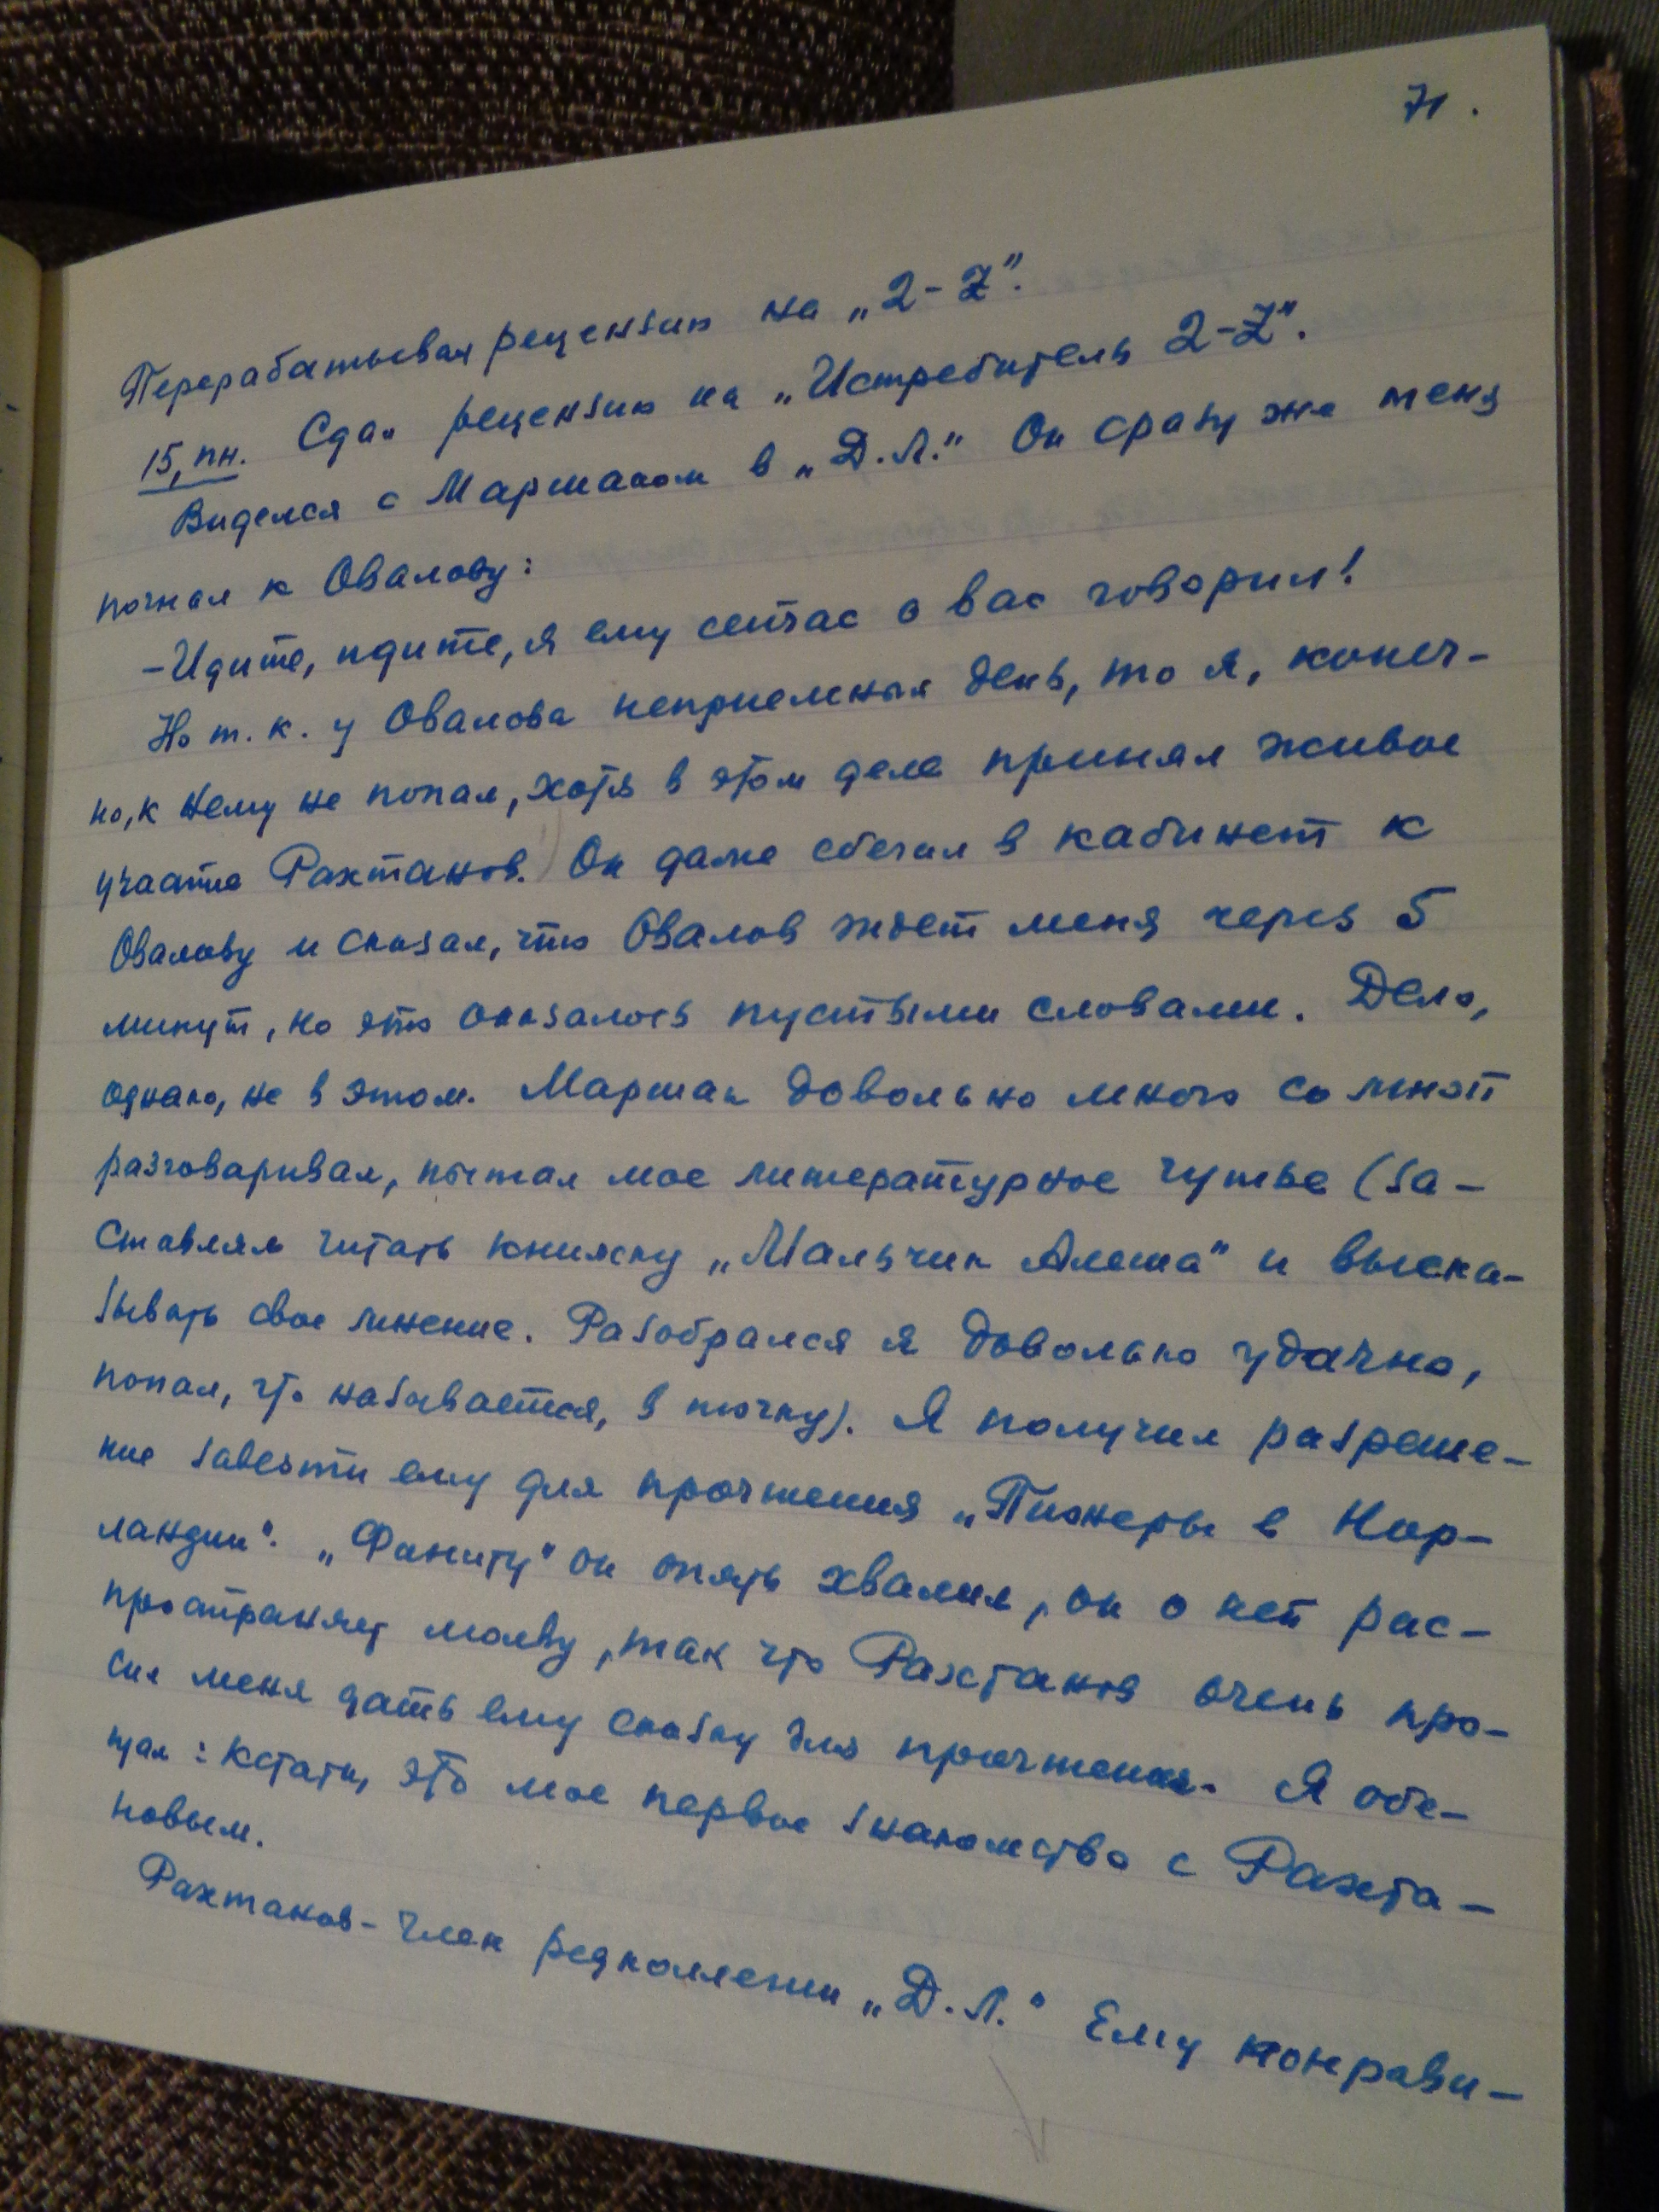 71.
Перерабатывал рецензию на „2-Z".
15, пн. Сдал рецензию на „Истребитель 2-Z".
Виделся с Маршаком в „Д.Л." Он сразу же меня
погнал к Овалову:
-Идите, идите, я ему сейчас о вас говорил!
Но т.к. у Овалова неприемный день, то я, конеч-
но, к нему не попал, хотя в этом деле принял живое
участие Рахтанов. Он даже сбегал в кабинет к
Овалову и сказал, что Овалов ждет меня через 5
минут, но это оказалось пустыми словами. Дело,
однако, не в этом. Маршак довольно много со мной
разговаривал, пытал мое литературное чутье (за-
ставлял читать книжку „Мальчик Алеша" и выска-
зывать свое мнение. Разобрался я довольно удачно,
попал, что называется, в точку). Я получил разреше-
ние завезти ему для прочтения „Пионеры в Нор-
ландии". „Фаниту" он опять хвалил, он о ней рас-
пространяет молву, так что Рахтанов очень про-
сил меня дать ему сказку для прочтения. Я обе-
щал: Кстати, это мое первое знакомство с Рахта-
новым.
Рахтанов - член редколлегии „Д.Л." Ему понрави-